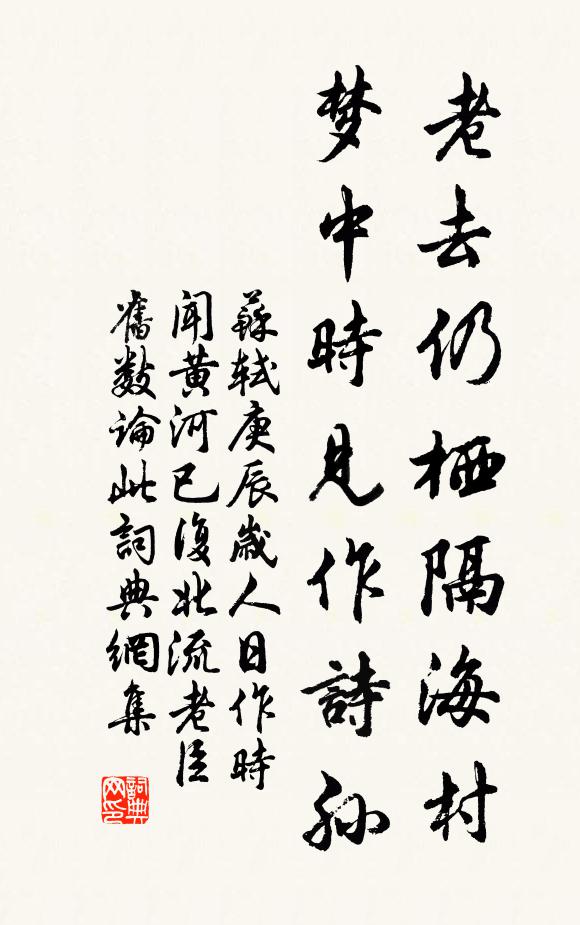 老去仍栖隔海村
梦中時見作詩孫
蘇軾庚辰歲人日作時
聞黄河已復北流老臣
舊數論此詞典網集
詞典网印